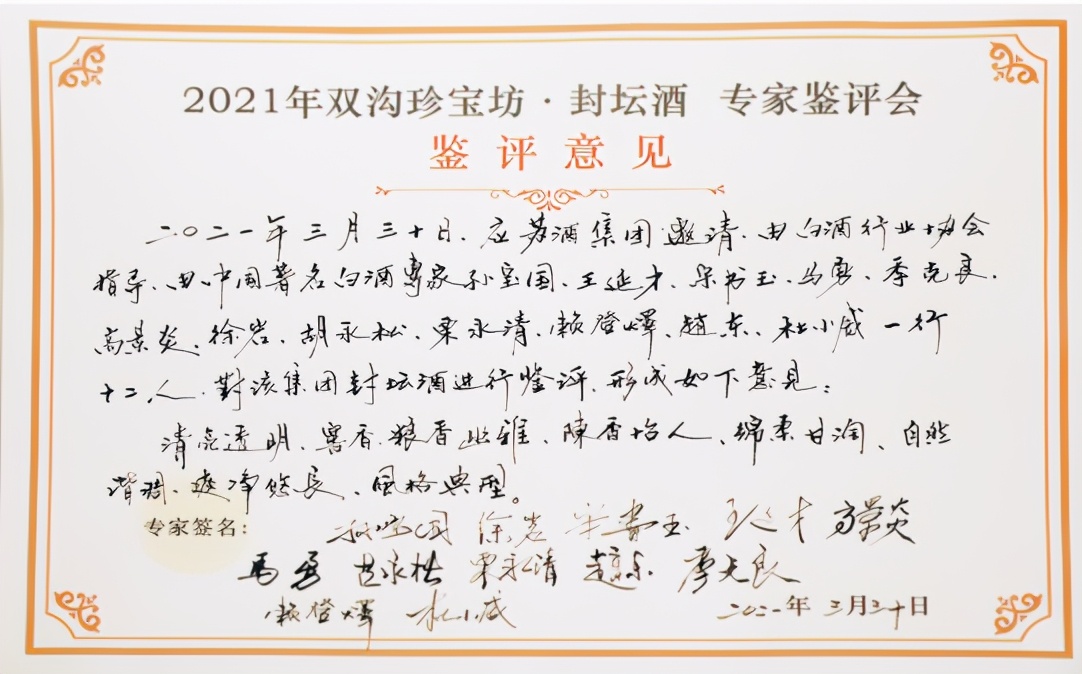 2021年双沟珍宝坊·封坛酒 专家鉴评会
鉴评意见
二〇二一年三月三十日、应苏酒集团邀请、由白酒行业协会
指导、由中国著名白酒專家孙宝国、王延才、宋书玉、马勇、季克良、
高景炎、徐岩、胡永松、栗永清、赖登燡、趙东、杜小威一行
十二人、對该集团封坛酒进行鉴评、形成如下意見：
清亮透明、窖香、粮香幽雅、陳香怡人、绵柔甘润、自然
谐调、爽净悠長、風格典型。
专家签名：
孙宝国 徐岩 宋書玉 王延才 高景炎
馬勇 胡永松 栗永清 趙东 季克良
赖登燡 杜小威 二〇二一年三月三十日